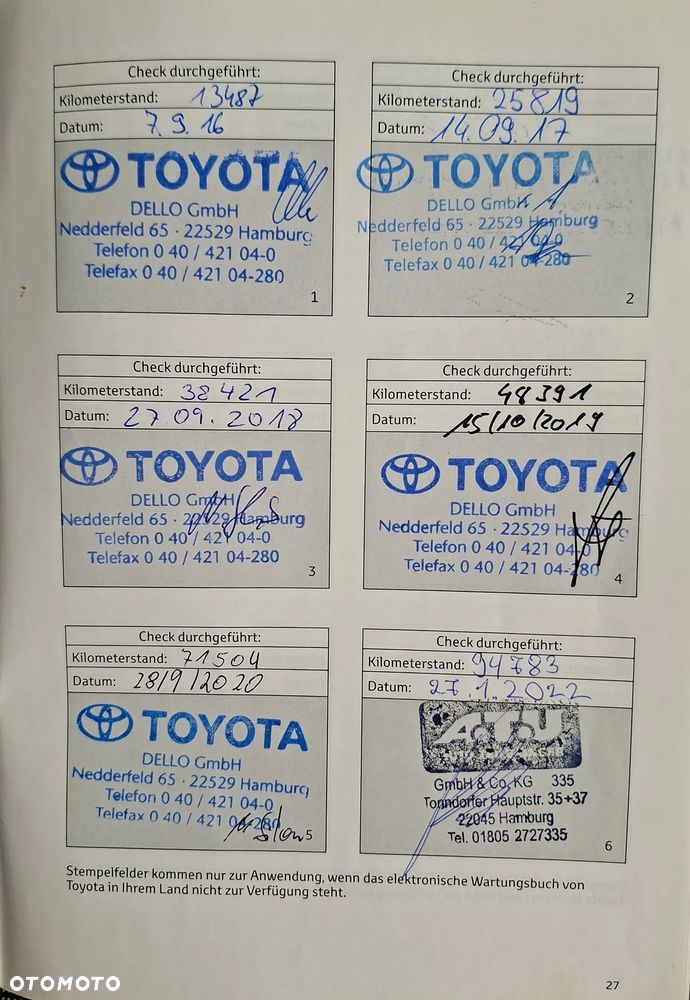 Check durchgeführt:
Kilometerstand: 13487
Datum: 7.9.16
TOYOTA
DELLO GmbH
Nedderfeld 65 · 22529 Hamburg
Telefon 0 40 / 421 04-0
Telefax 0 40 / 421 04-280
1
Check durchgeführt:
Kilometerstand: 25819
Datum: 14.09.17
TOYOTA
DELLO GmbH
Nedderfeld 65 · 22529 Hamburg
Telefon 0 40 / 421 04-0
Telefax 0 40 / 421 04-280
2
Check durchgeführt:
Kilometerstand: 38421
Datum: 27.09.2018
TOYOTA
DELLO GmbH
Nedderfeld 65 · 22529 Hamburg
Telefon 0 40 / 421 04-0
Telefax 0 40 / 421 04-280
3
Check durchgeführt:
Kilometerstand: 48391
Datum: 15/10/2019
TOYOTA
DELLO GmbH
Nedderfeld 65 · 22529 Hamburg
Telefon 0 40 / 421 04-0
Telefax 0 40 / 421 04-280
4
Check durchgeführt:
Kilometerstand: 71504
Datum: 28/9/2020
TOYOTA
DELLO GmbH
Nedderfeld 65 · 22529 Hamburg
Telefon 0 40 / 421 04-0
Telefax 0 40 / 421 04-280
5
Check durchgeführt:
Kilometerstand: 94783
Datum: 27.1.2022
ATU
GmbH & Co. KG 335
Tonndorfer Hauptstr. 35+37
22045 Hamburg
Tel. 01805 2727335
6
Stempelfelder kommen nur zur Anwendung, wenn das elektronische Wartungsbuch von
Toyota in Ihrem Land nicht zur Verfügung steht.
27
OTOMOTO